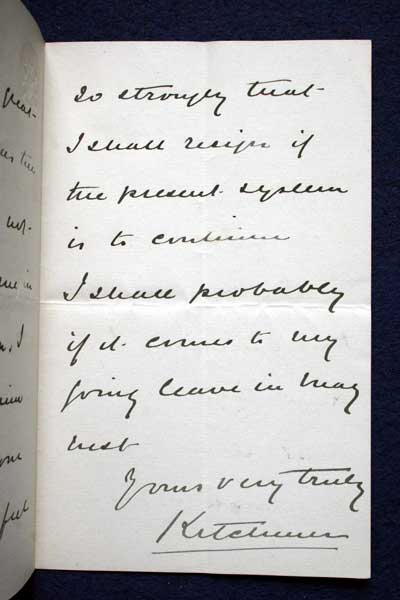 so strongly that
I shall resign if
the present system
is to continue
I shall probably
if it comes to my
going leave in May
next
Yours very truly
Kitchener